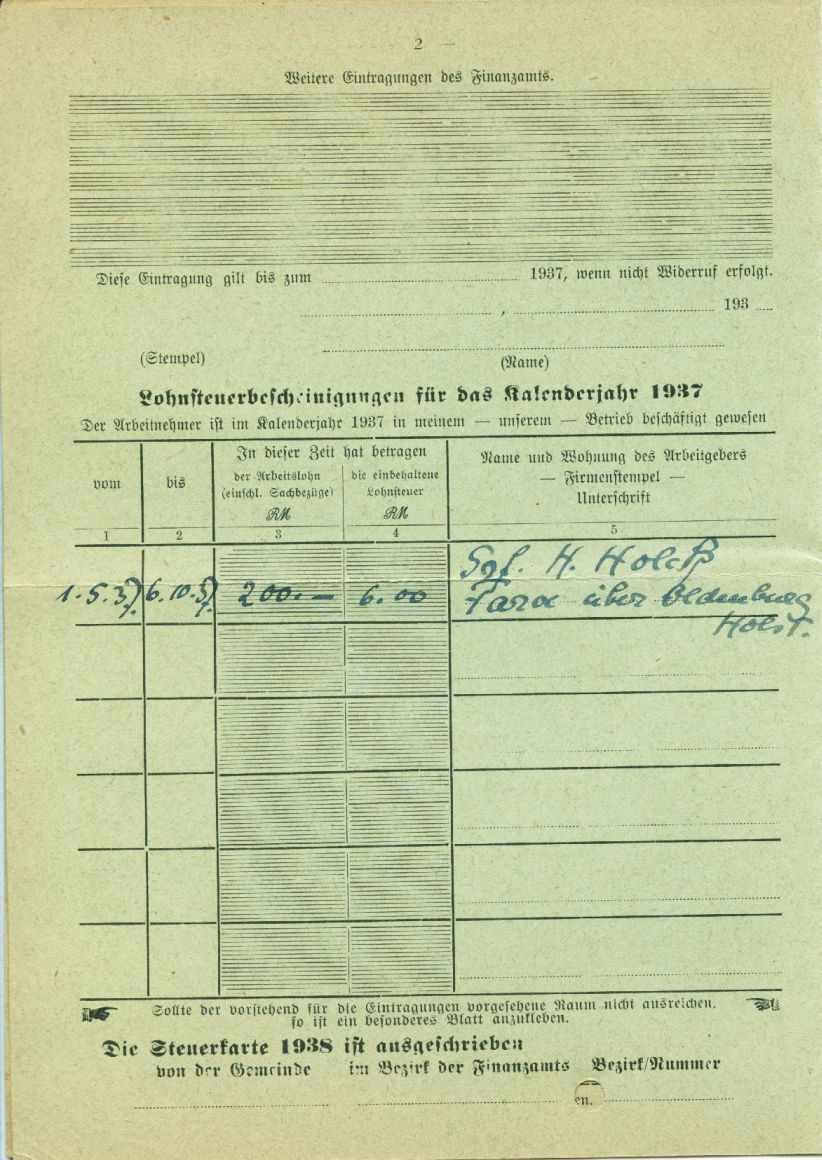 2 —
Weitere Eintragungen des Finanzamts.
Diese Eintragung gilt bis zum 1937, wenn nicht Widerruf erfolgt.
, 193
(Stempel) (Name)
Lohnsteuerbescheinigungen für das Kalenderjahr 1937
Der Arbeitnehmer ist im Kalenderjahr 1937 in meinem — unserem — Betrieb beschäftigt gewesen
vom
bis
In dieser Zeit hat betragen
der Arbeitslohn
(einschl. Sachbezüge)
RM
die einbehaltene
Lohnsteuer
RM
Name und Wohnung des Arbeitgebers
— Firmenstempel —
Unterschrift
1 2 3 4 5
1.5.37. 6.10.37. 200.— 6.00
H.
über Oldenburg
Holst.
Sollte der vorstehend für die Eintragungen vorgesehene Raum nicht ausreichen,
so ist ein besonderes Blatt anzukleben.
Die Steuerkarte 1938 ist ausgeschrieben
von der Gemeinde im Bezirk der Finanzamts Bezirk/Nummer
en.